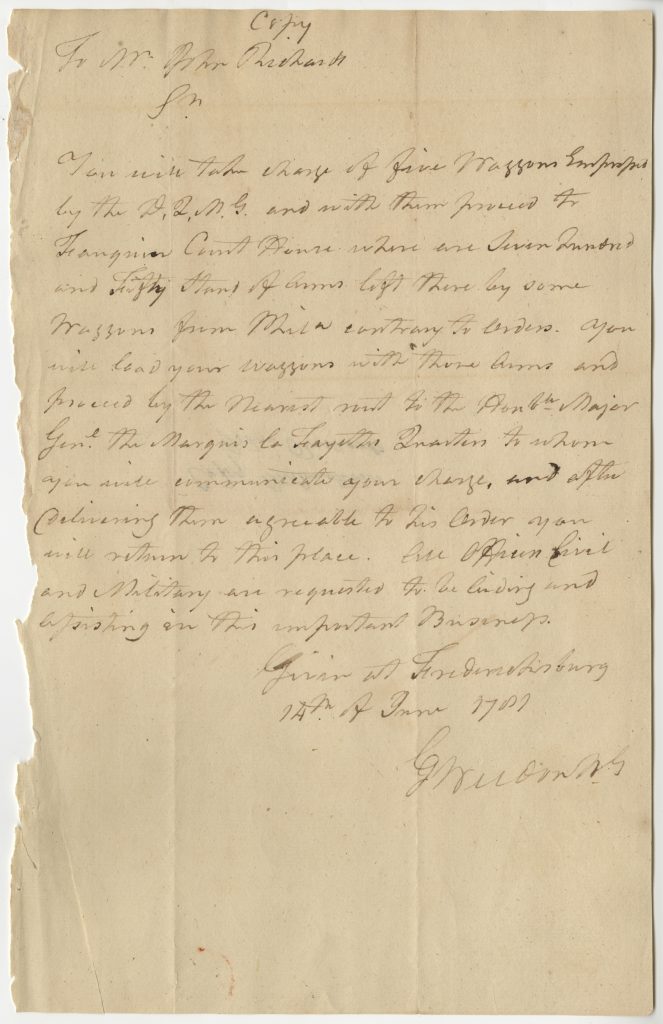 Copy
To Mr. John Richards
Sr
You will take charge of five Waggons Employed
by the D.Q.M.G. and with them proceed to
Fauquier Court House where are Seven Hundred
and Fifty Stand of Arms left there by some
Waggons from Phila contrary to orders. You
will load your waggons with those Arms and
proceed by the Nearest rout to the Honble Major
Genl. the Marquis la Fayettes Quarters to whom
you will communicate your charge, and after
delivering them agreeable to his Order you
will return to this place. All Officers Civil
and Military are requested to be aiding and
assisting in this important Business.
Given at Fredericksburg
14th of June 1781
G Weedon BG